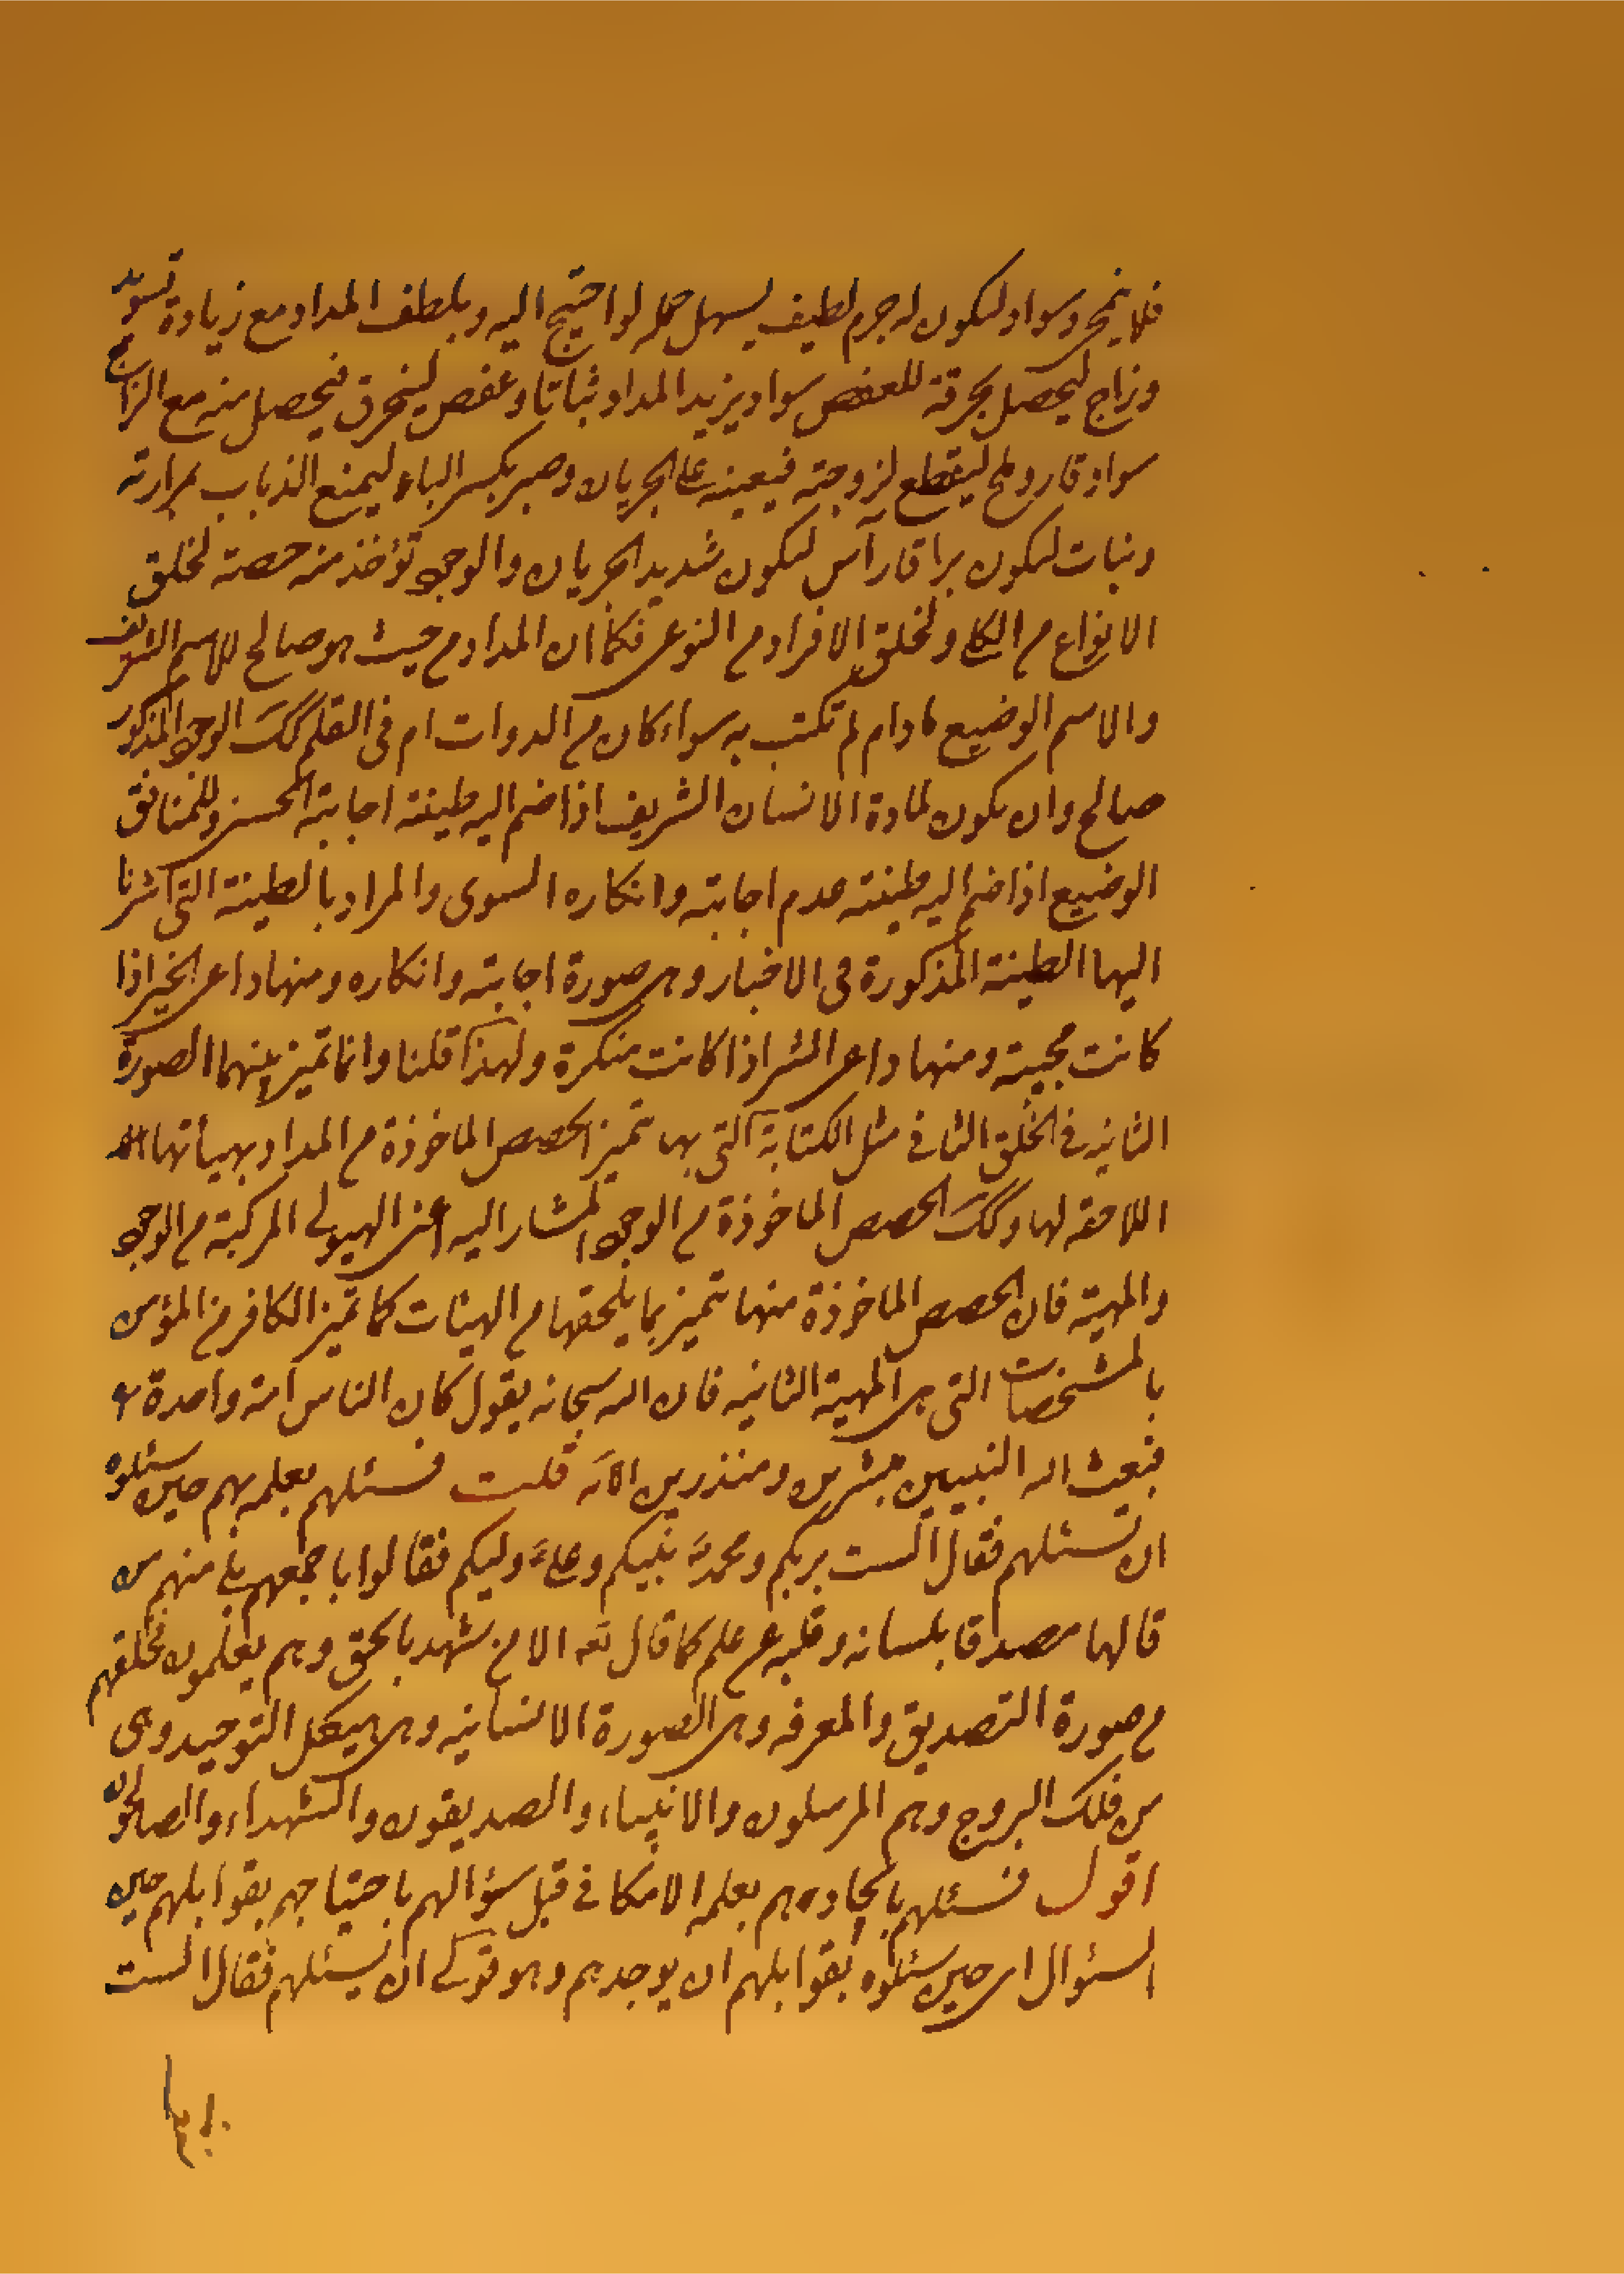 فلا ينمحى وسواد ليكون له جرم لطيف يسهل حمله لو احتيج اليه ويلطف المداد مع زيادة تسويد
وزاج ليحصل بحرقة للعفص سواد يزيد المداد ثباتا وعفص لينحرق فيحصل منه مع الزاج
سواد قار وملح ليقطع لزوجته فيعينه على الجريان وصبر بكسر الباء ليمنع الذباب بمرارته
ونبات ليكون براقا وآس ليكون شديد الجريان والوجود تؤخذ منه حصة لخلق
الانواع من الكلى ولخلق الافراد من النوعى فكما ان المداد من حيث هو صالح للاسم الشريف
والاسم الوضيع مادام لم تكتب به سواء كان من الدوات ام فى القلم كك الوجود المذكور
صالح وان يكون لمادة الانسان الشريف اذا ضم اليه طينة اجابته الحسنى وللمنافق
الوضيع اذا ضم اليه طينة عدم اجابته وانكاره السوى والمراد بالطينة التى اشرنا
اليها الطينة المذكورة فى الاخبار وهى صورة اجابته وانكاره ومنها داعى الخير اذا
كانت مجيبة ومنها داعى الشر اذا كانت منكرة ولهذا قلنا وانما تميز بينهما الصورة
الثانية فى الخلق الثانى مثل الكتابة التى بها تتميز الحصص الماخوذة من المداد بهيأتها
اللاحقة لها وكك الحصص الماخوذة من الوجود المشار اليه اعنى الهيولى المركبة من الوجود
والمهية فان الحصص الماخوذة منها تتميز بما يلحقها من الهيئات كما تميز الكافر من المؤمن
بالمشخصات التى هى المهية الثانيه فان الله سبحانه يقول كان الناس امة واحدة
فبعث الله النبيين مبشرين ومنذرين الآية قلت فسئلهم بعلمه بهم حين سئلوه
ان يسئلهم فقال الست بربكم ومحمد نبيكم وعلى وليكم فقالوا باجمعهم بلى منهم من
قالها مصدقا بلسانه وقلبه عن علم كما قال تعه الا من شهد بالحق وهم يعلمون فخلقهم
من صورة التصديق والمعرفه وهى الصورة الانسانيه وهى هيكل التوحيد وهى
من فلك البروج وهم المرسلون والانبياء والصديقون والشهداء والصالحون
اقول فسئلهم بايجادهم بعلمه الامكانى قبل سؤالهم باحتياجهم بقوابلهم حين
السؤال اى حين سئلوه بقوابلهم ان يوجدهم وهو قولى ان يسئلهم فقال الست